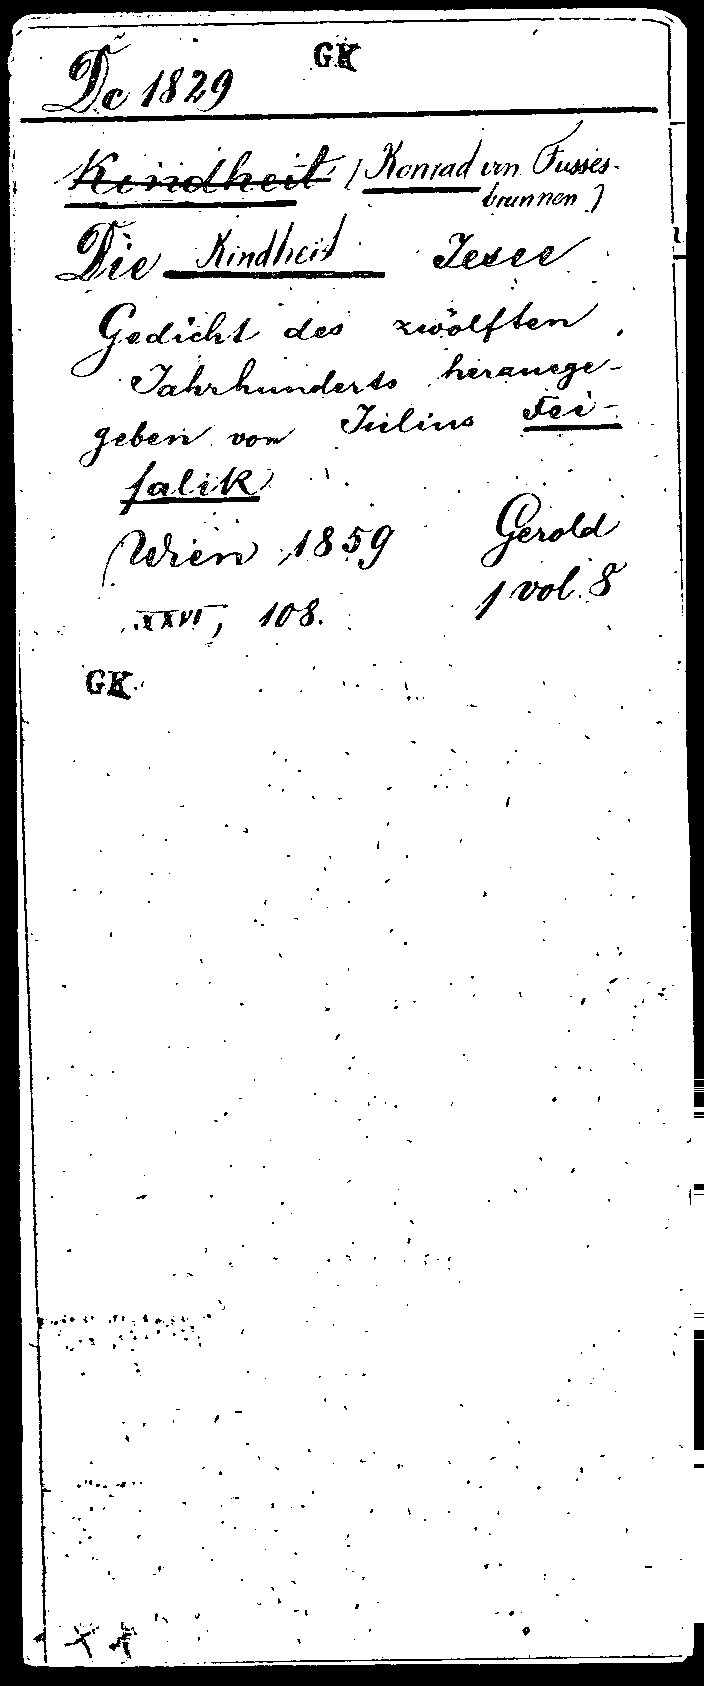 GK
De 1829
Kindheit [Konrad von Fusses-
brunnen]
Die Kindheit Jesu
Gedicht des zwölften
Jahrhunderts herausge-
geben von Julius Fei-
falik
Wien 1859 Gerold
XXVI, 108. 1 vol. 8
GK